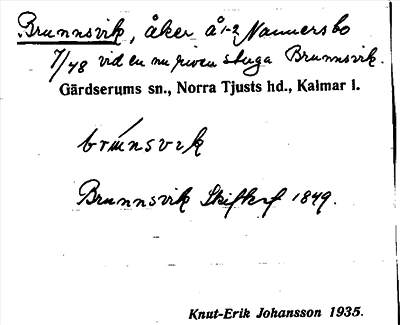 Brunnsvik, åker å 1-2 Nannersbo
7/48 vid en nu riven stuga Brunnsvik.
Gärdserums sn., Norra Tjusts hd., Kalmar l.
brúnsvik
Brunnsvik Skifteskf 1849.
Knut-Erik Johansson 1935.